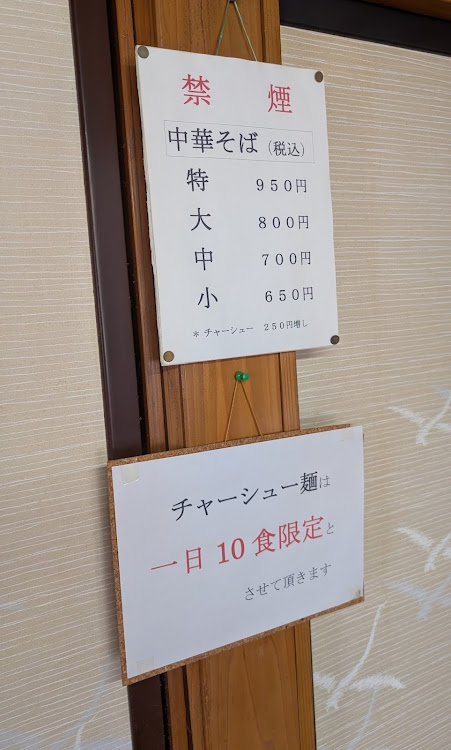 禁 煙
中華そば（税込）
特 ９５０円
大 ８００円
中 ７００円
小 ６５０円
＊ チャーシュー ２５０円増し
チャーシュー麺は
一日 10 食限定と
させて頂きます